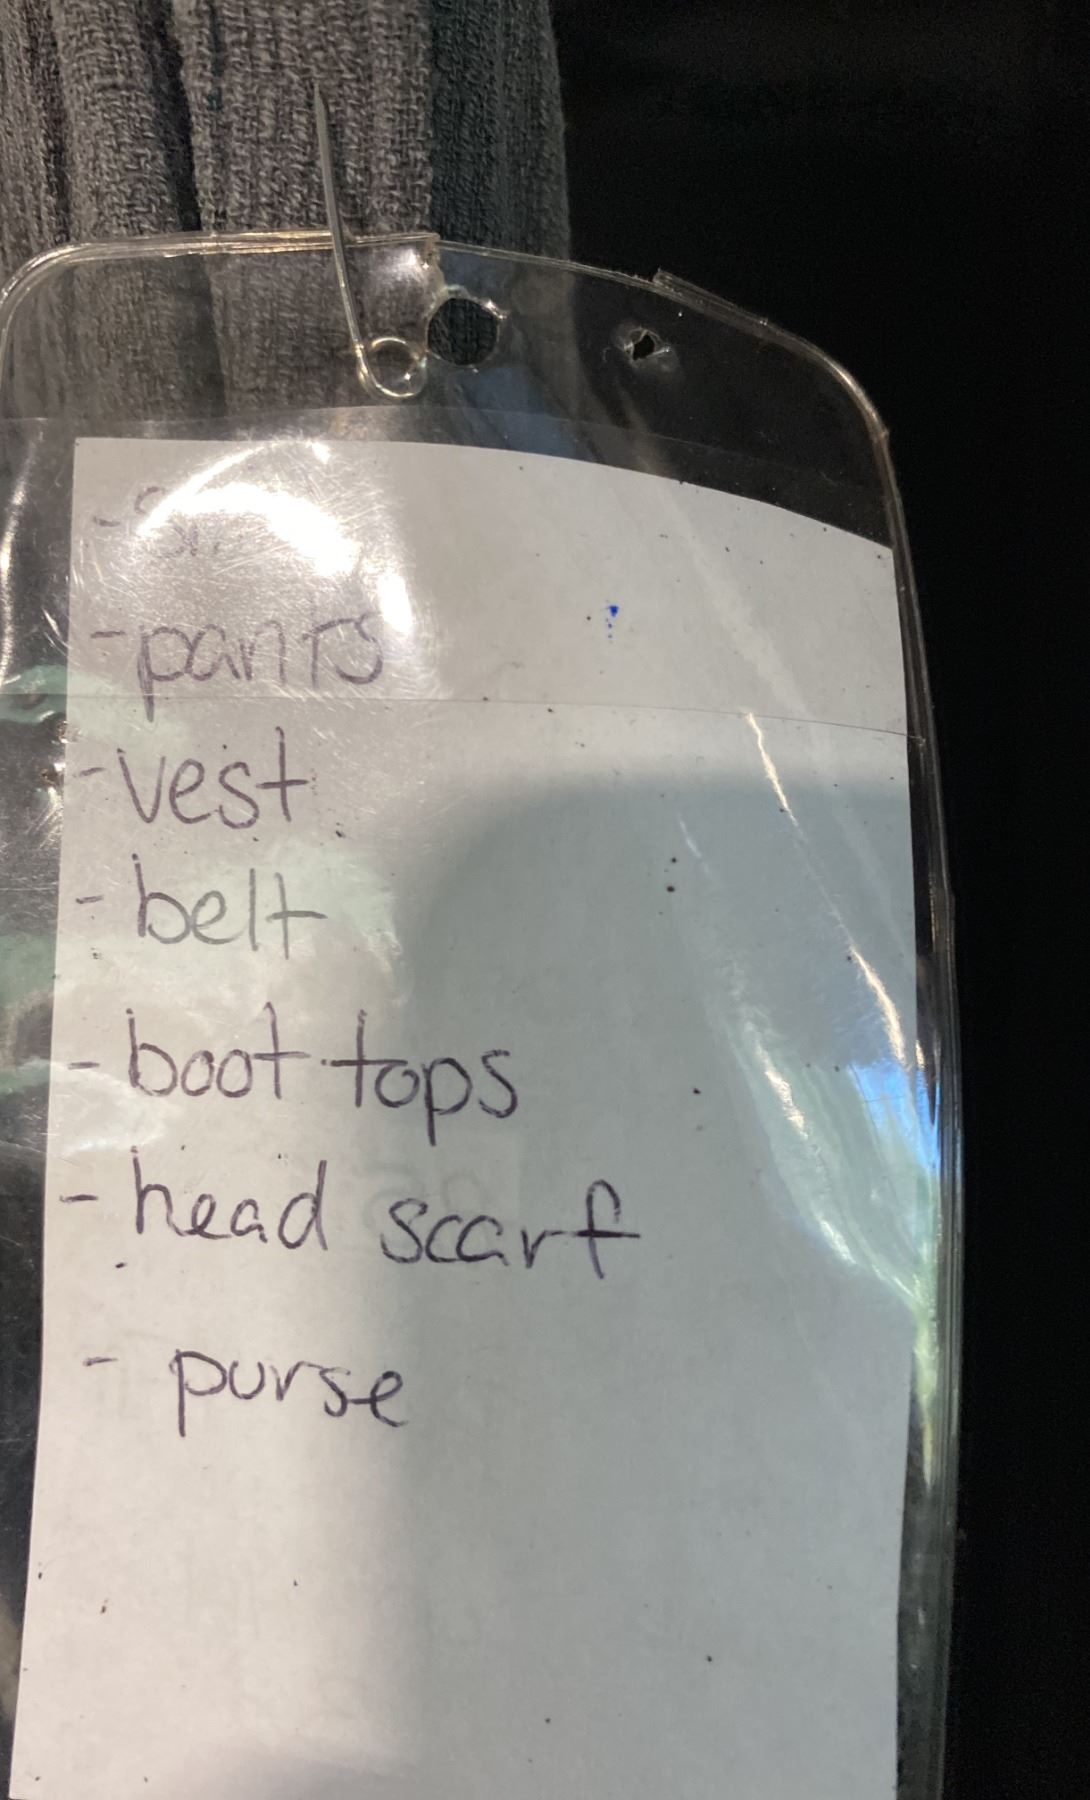 - pants
- vest
- belt
- boot tops
- head scarf
- purse